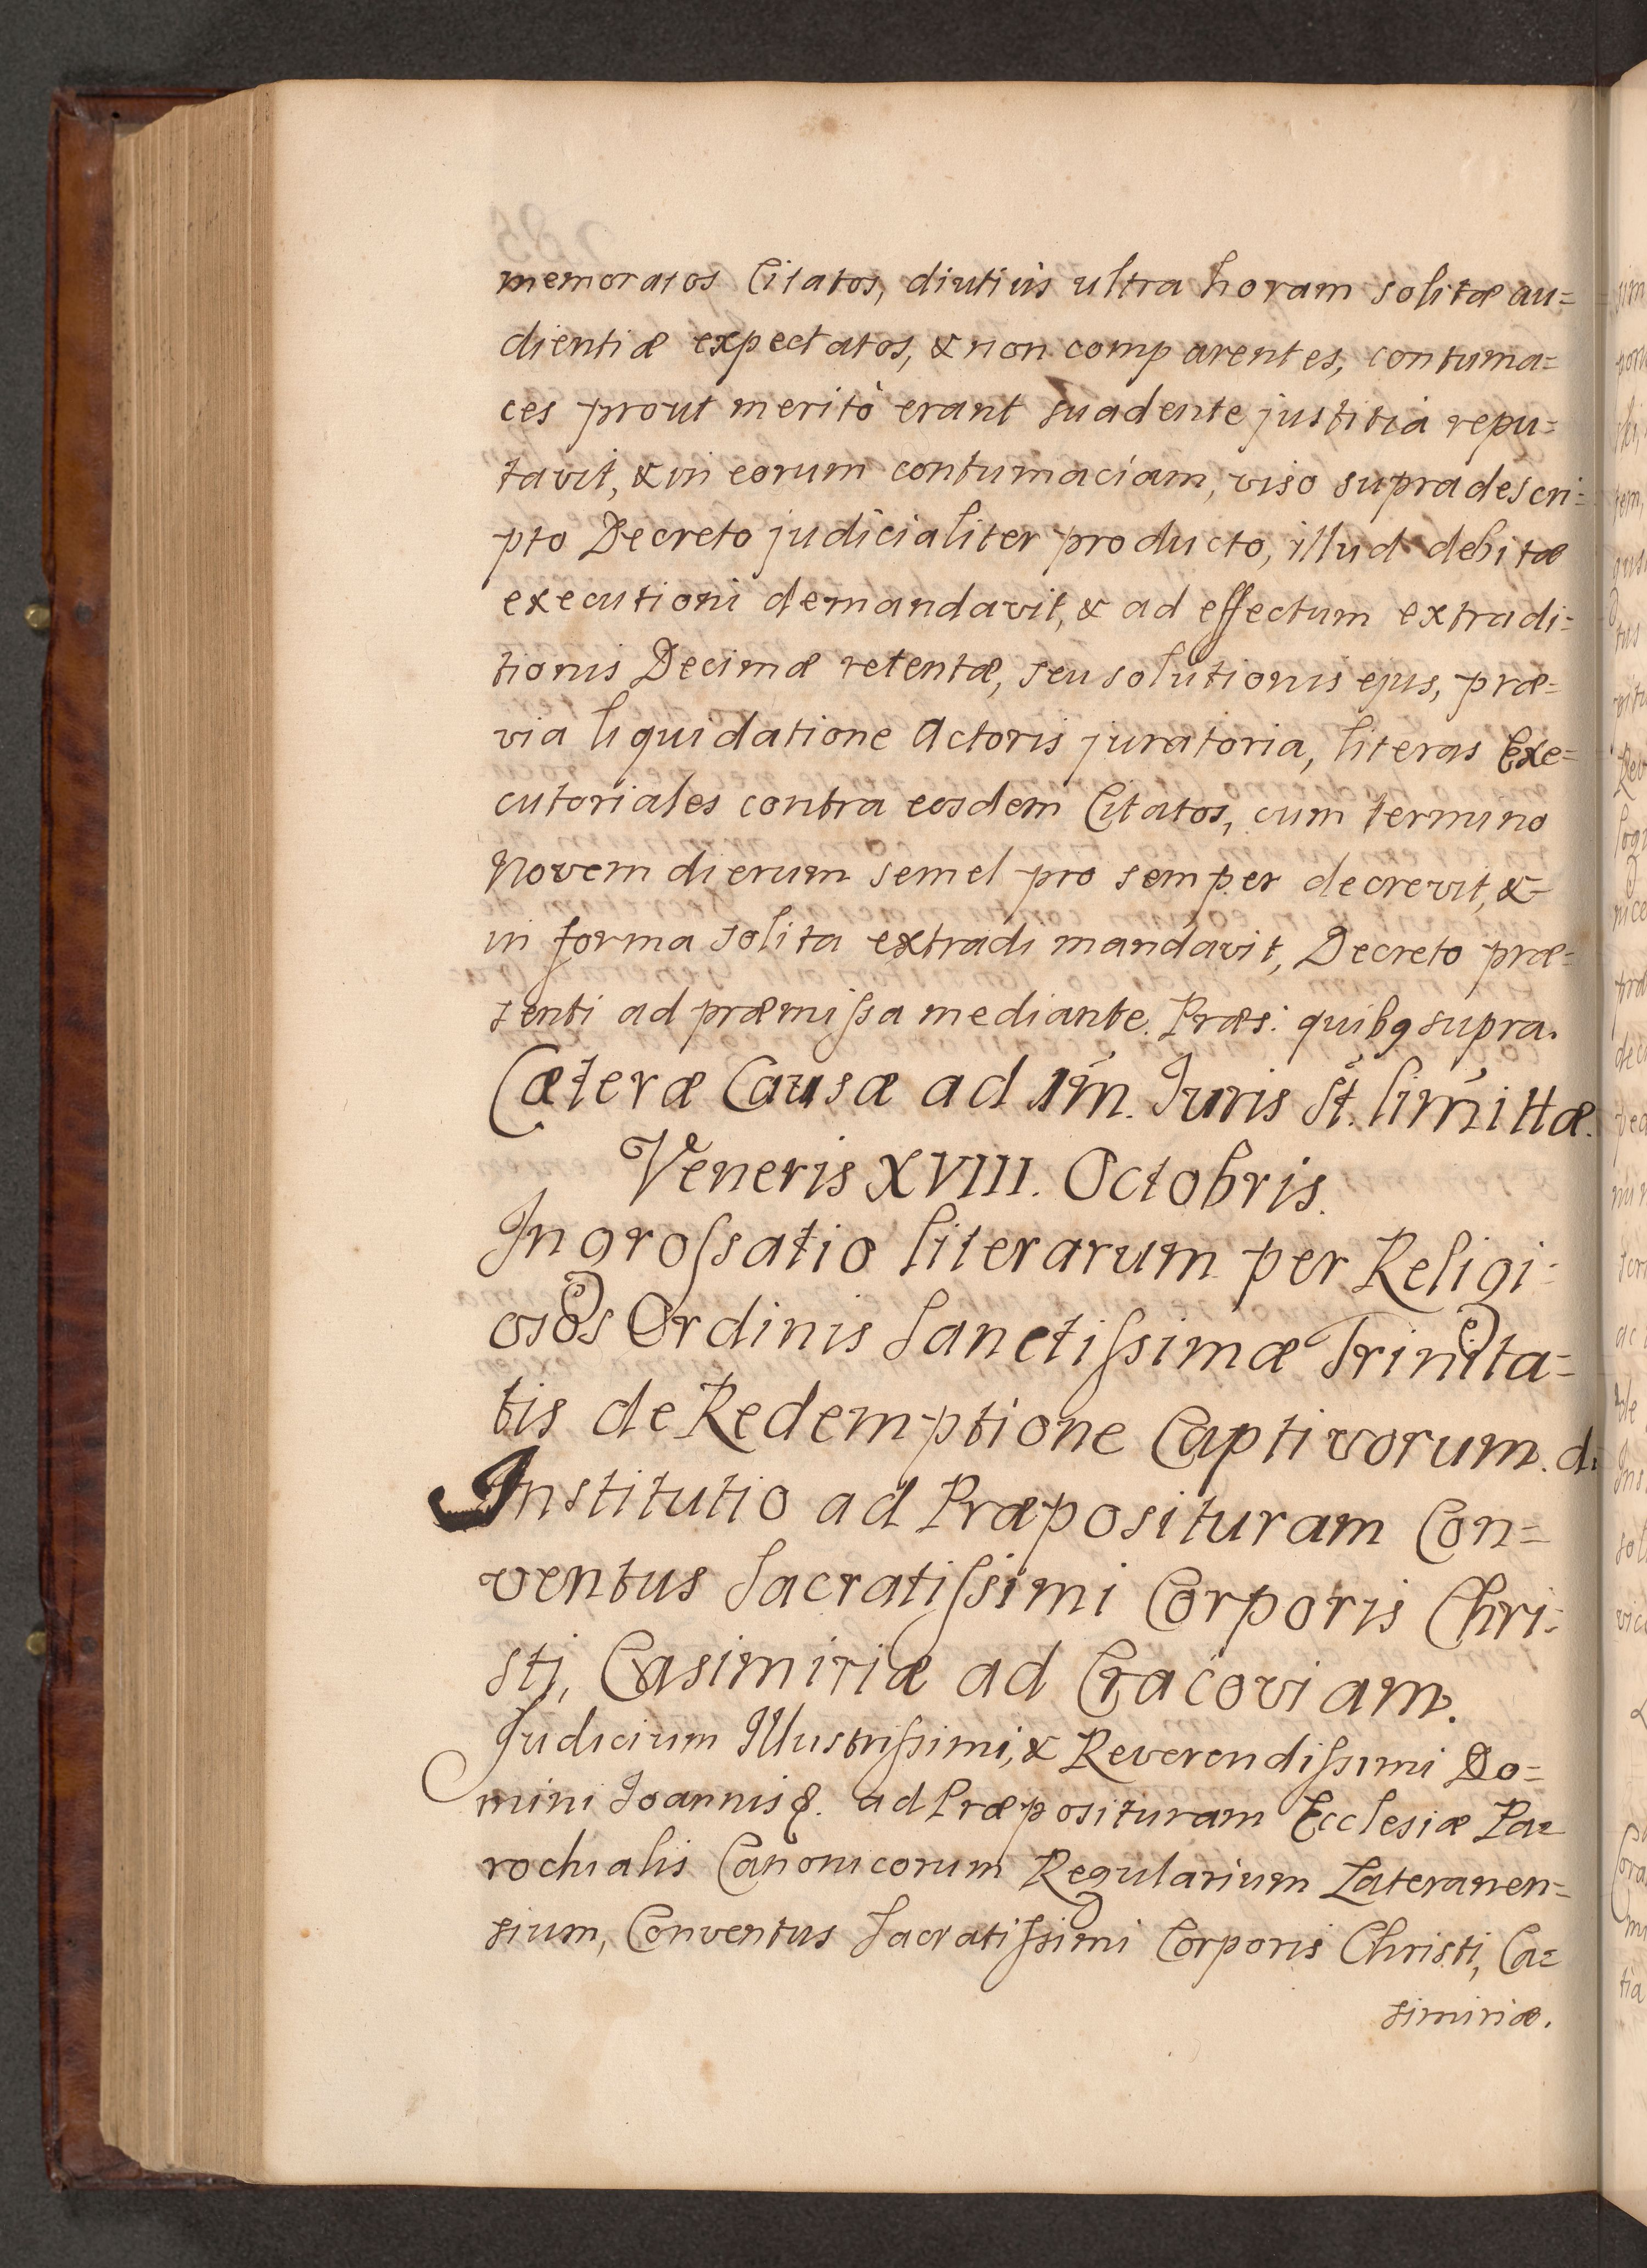 memoratos Citatos, diutiùs ultra horam solitæ au=
dientiæ expectatos, & non comparentes, contuma=
ces prout meritò erant suadente justitiâ repu=
tavit, & in eorum contumaciam, viso supradescri=
pto Decreto judicialiter producto, illud debitæ
executioni demandavit, & ad effectum extradi=
tionis Decimæ retentæ, seu solutionis ejus, præ=
via liquidatione Actoris juratoria, literas Exe=
cutoriales contra eosdem Citatos, cum termino
Novem dierum semel pro semper decrevit, &
in forma solita extradi mandavit, Decreto præ=
senti ad præmissa mediante. Præs: quibq supra.
Cæteræ Causæ ad 1m̃. Juris St̃. lim̃ittæ.
Veneris XVIII. Octobris.
Ingrossatio literarum per Religi=
osos Ordinis Sanctissimæ Trinita=
tis de Redemptione Captivorum.
Institutio ad Præposituram Con=
ventus Sacratissimi Corporis Chri=
sti, Casimiriæ ad Cracoviam.
Judicium Illustrissimi, & Reverendissimi Do=
mini Joannis &. ad Præposituram Ecclesiæ Pa=
rochialis Canonicorum Regularium Lateranen=
sium, Conventus Sacratissimi Corporis Christi, Ca=
simiriæ.